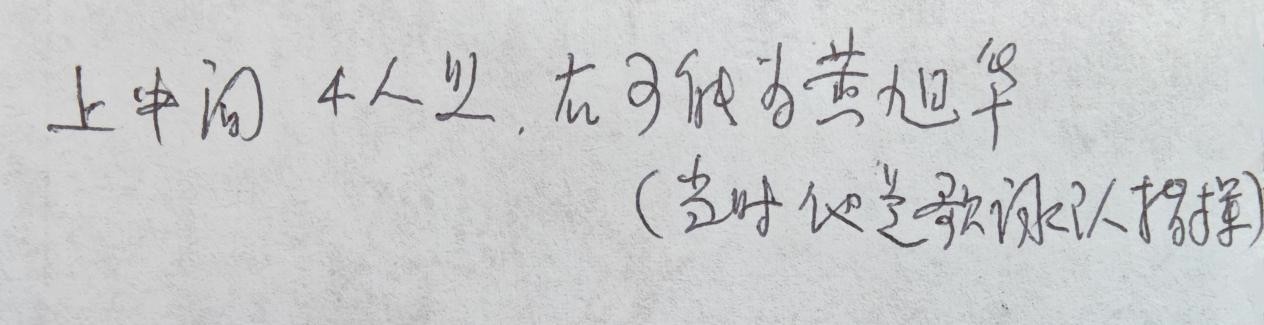 上中间 4人照.右可能为黄旭华
(当时他是歌咏队指挥)